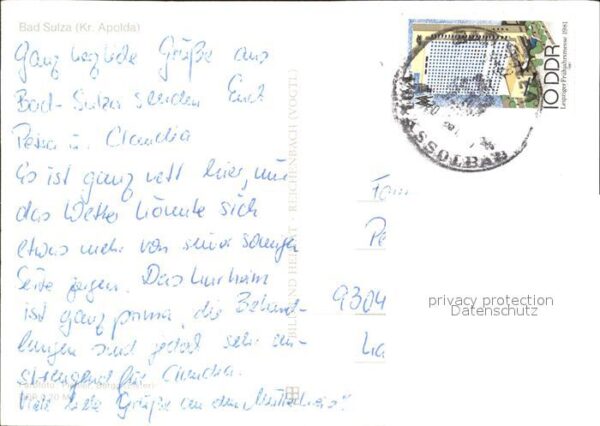 Bad Sulza (Kr. Apolda)
Ganz herzliche Grüße aus
Bad-Sulza senden Euch
Petra u. Claudia
Es ist ganz nett hier, nur
das Wetter könnte sich
etwas mehr von seiner sonnigen
Seite zeigen. Das Kurheim
ist ganz prima, die Behand-
lungen sind jedoch sehr an-
strengend für Claudia.
Viele liebe Grüße an den
BILD UND HEIMAT · REICHENBACH (VOGTL)
10 DDR
Leipziger Frühjahrsmesse 1981
SOLBAD
Fam
Pe
9304
privacy protection
Datenschutz